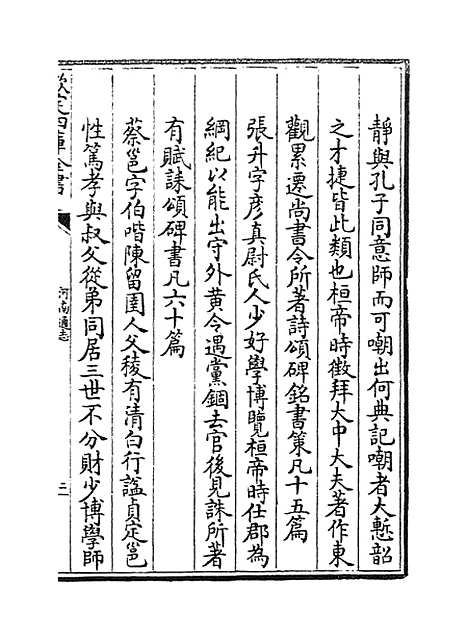 靜與孔子同意師而可嘲出何典記嘲者大慙韶
之才捷皆此類也桓帝時徵拜太中大夫著作東
觀累遷尚書令所著詩頌碑銘書策凡十五篇
張升字彥真尉氏人少好學博覽桓帝時仕郡為
綱紀以能出守外黄令遇黨錮去官後見誅所著
有賦誄頌碑書凡六十篇
蔡邕字伯喈陳留圉人父稜有清白行諡貞定邕
性篤孝與叔父從弟同居三世不分財少博學師
欽定四庫全書
河南通志
三